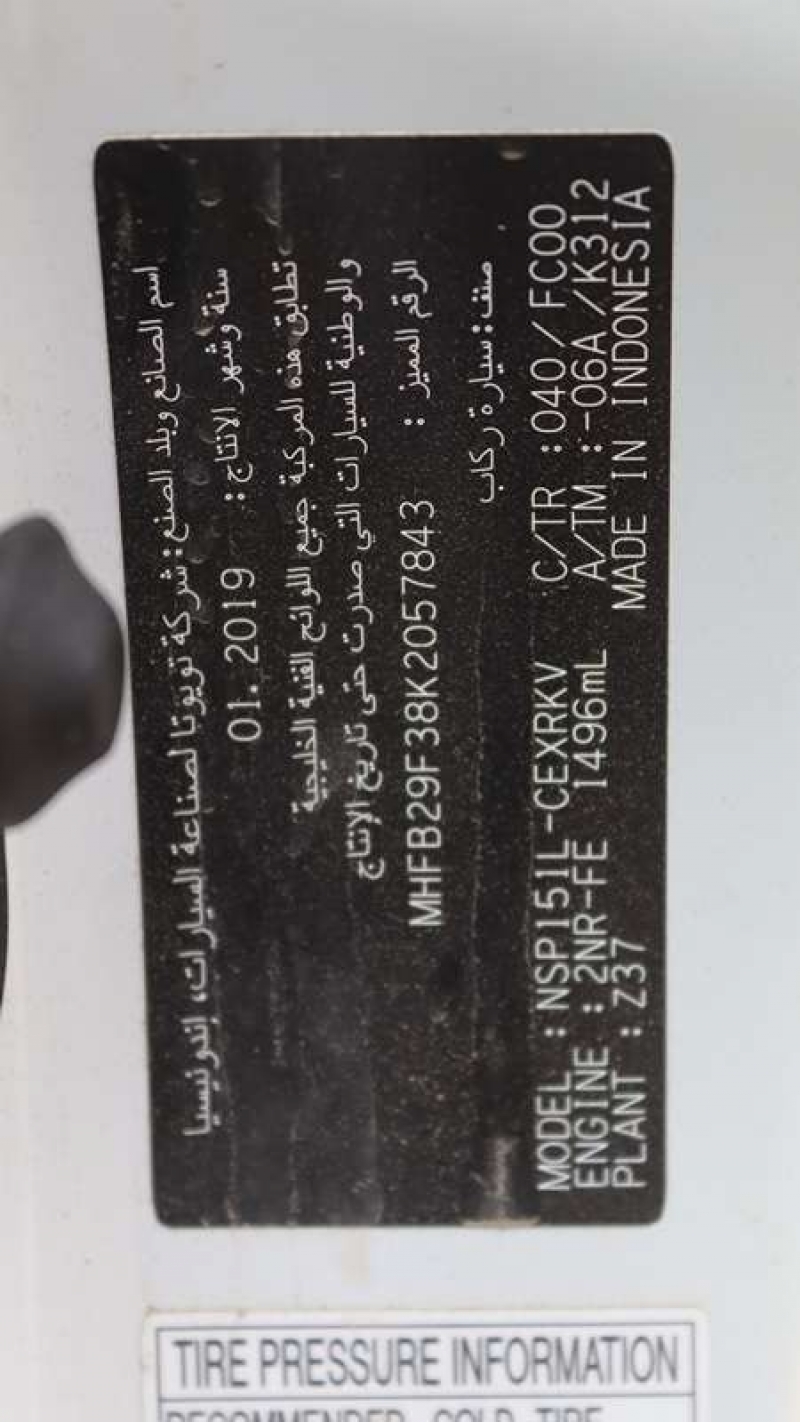 اسم الصانع وبلد الصنع: شركة تويوتا لصناعة السيارات، إندونيسيا
سنة وشهر الانتاج: 01.2019
تطابق هذه المركبة جميع اللوائح الفنية الخليجية
والوطنية للسيارات التي صدرت حتى تاريخ الإنتاج
الرقم المميز : MHFB29F38K2057843
صنف: سيارة ركاب
MODEL : NSP151L-CEXRKV C/TR : 040/FC00
ENGINE : 2NR-FE 1496mL A/TM : -06A/K312
PLANT : Z37 MADE IN INDONESIA
TIRE PRESSURE INFORMATION
RECOMMENDED COLD TIRE